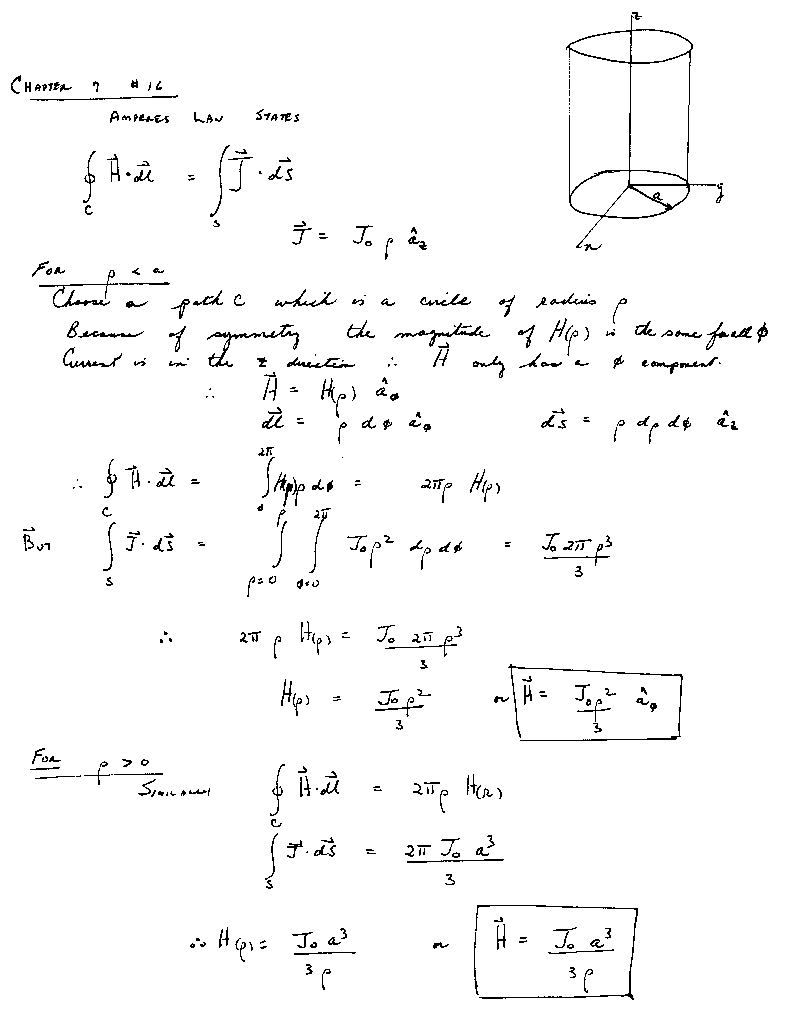 z
CHAPTER 7 #16
AMPERES LAW STATES
∮_C H⃗·dl⃗ = ∫_S J⃗·ds⃗
a y
x
J⃗ = J₀ ρ â_z
FOR ρ < a
Choose a path C which is a circle of radius ρ
Because of symmetry the magnitude of H(ρ) is the same for all ϕ
Current is in the z direction ∴ H⃗ only has a ϕ component.
∴ H⃗ = H(ρ) â_ϕ
dl⃗ = ρ dϕ â_ϕ ds⃗ = ρ dρ dϕ â_z
∴ ∮_C H⃗·dl⃗ = ∫_0^{2π} H(ρ)ρ dϕ = 2πρ H(ρ)
BUT ∫_S J⃗·ds⃗ = ∫_{ρ=0}^{ρ} ∫_{ϕ=0}^{2π} J₀ρ² dρ dϕ = J₀ 2π ρ³ / 3
∴ 2π ρ H(ρ) = J₀ 2π ρ³ / 3
H(ρ) = J₀ ρ² / 3 or H⃗ = J₀ρ² / 3 â_ϕ
FOR ρ > 0
SIMILARLY ∮_C H⃗·dl⃗ = 2πρ H(r)
∫_S J⃗·ds⃗ = 2π J₀ a³ / 3
∴ H(ρ) = J₀ a³ / 3ρ or H⃗ = J₀ a³ / 3ρ